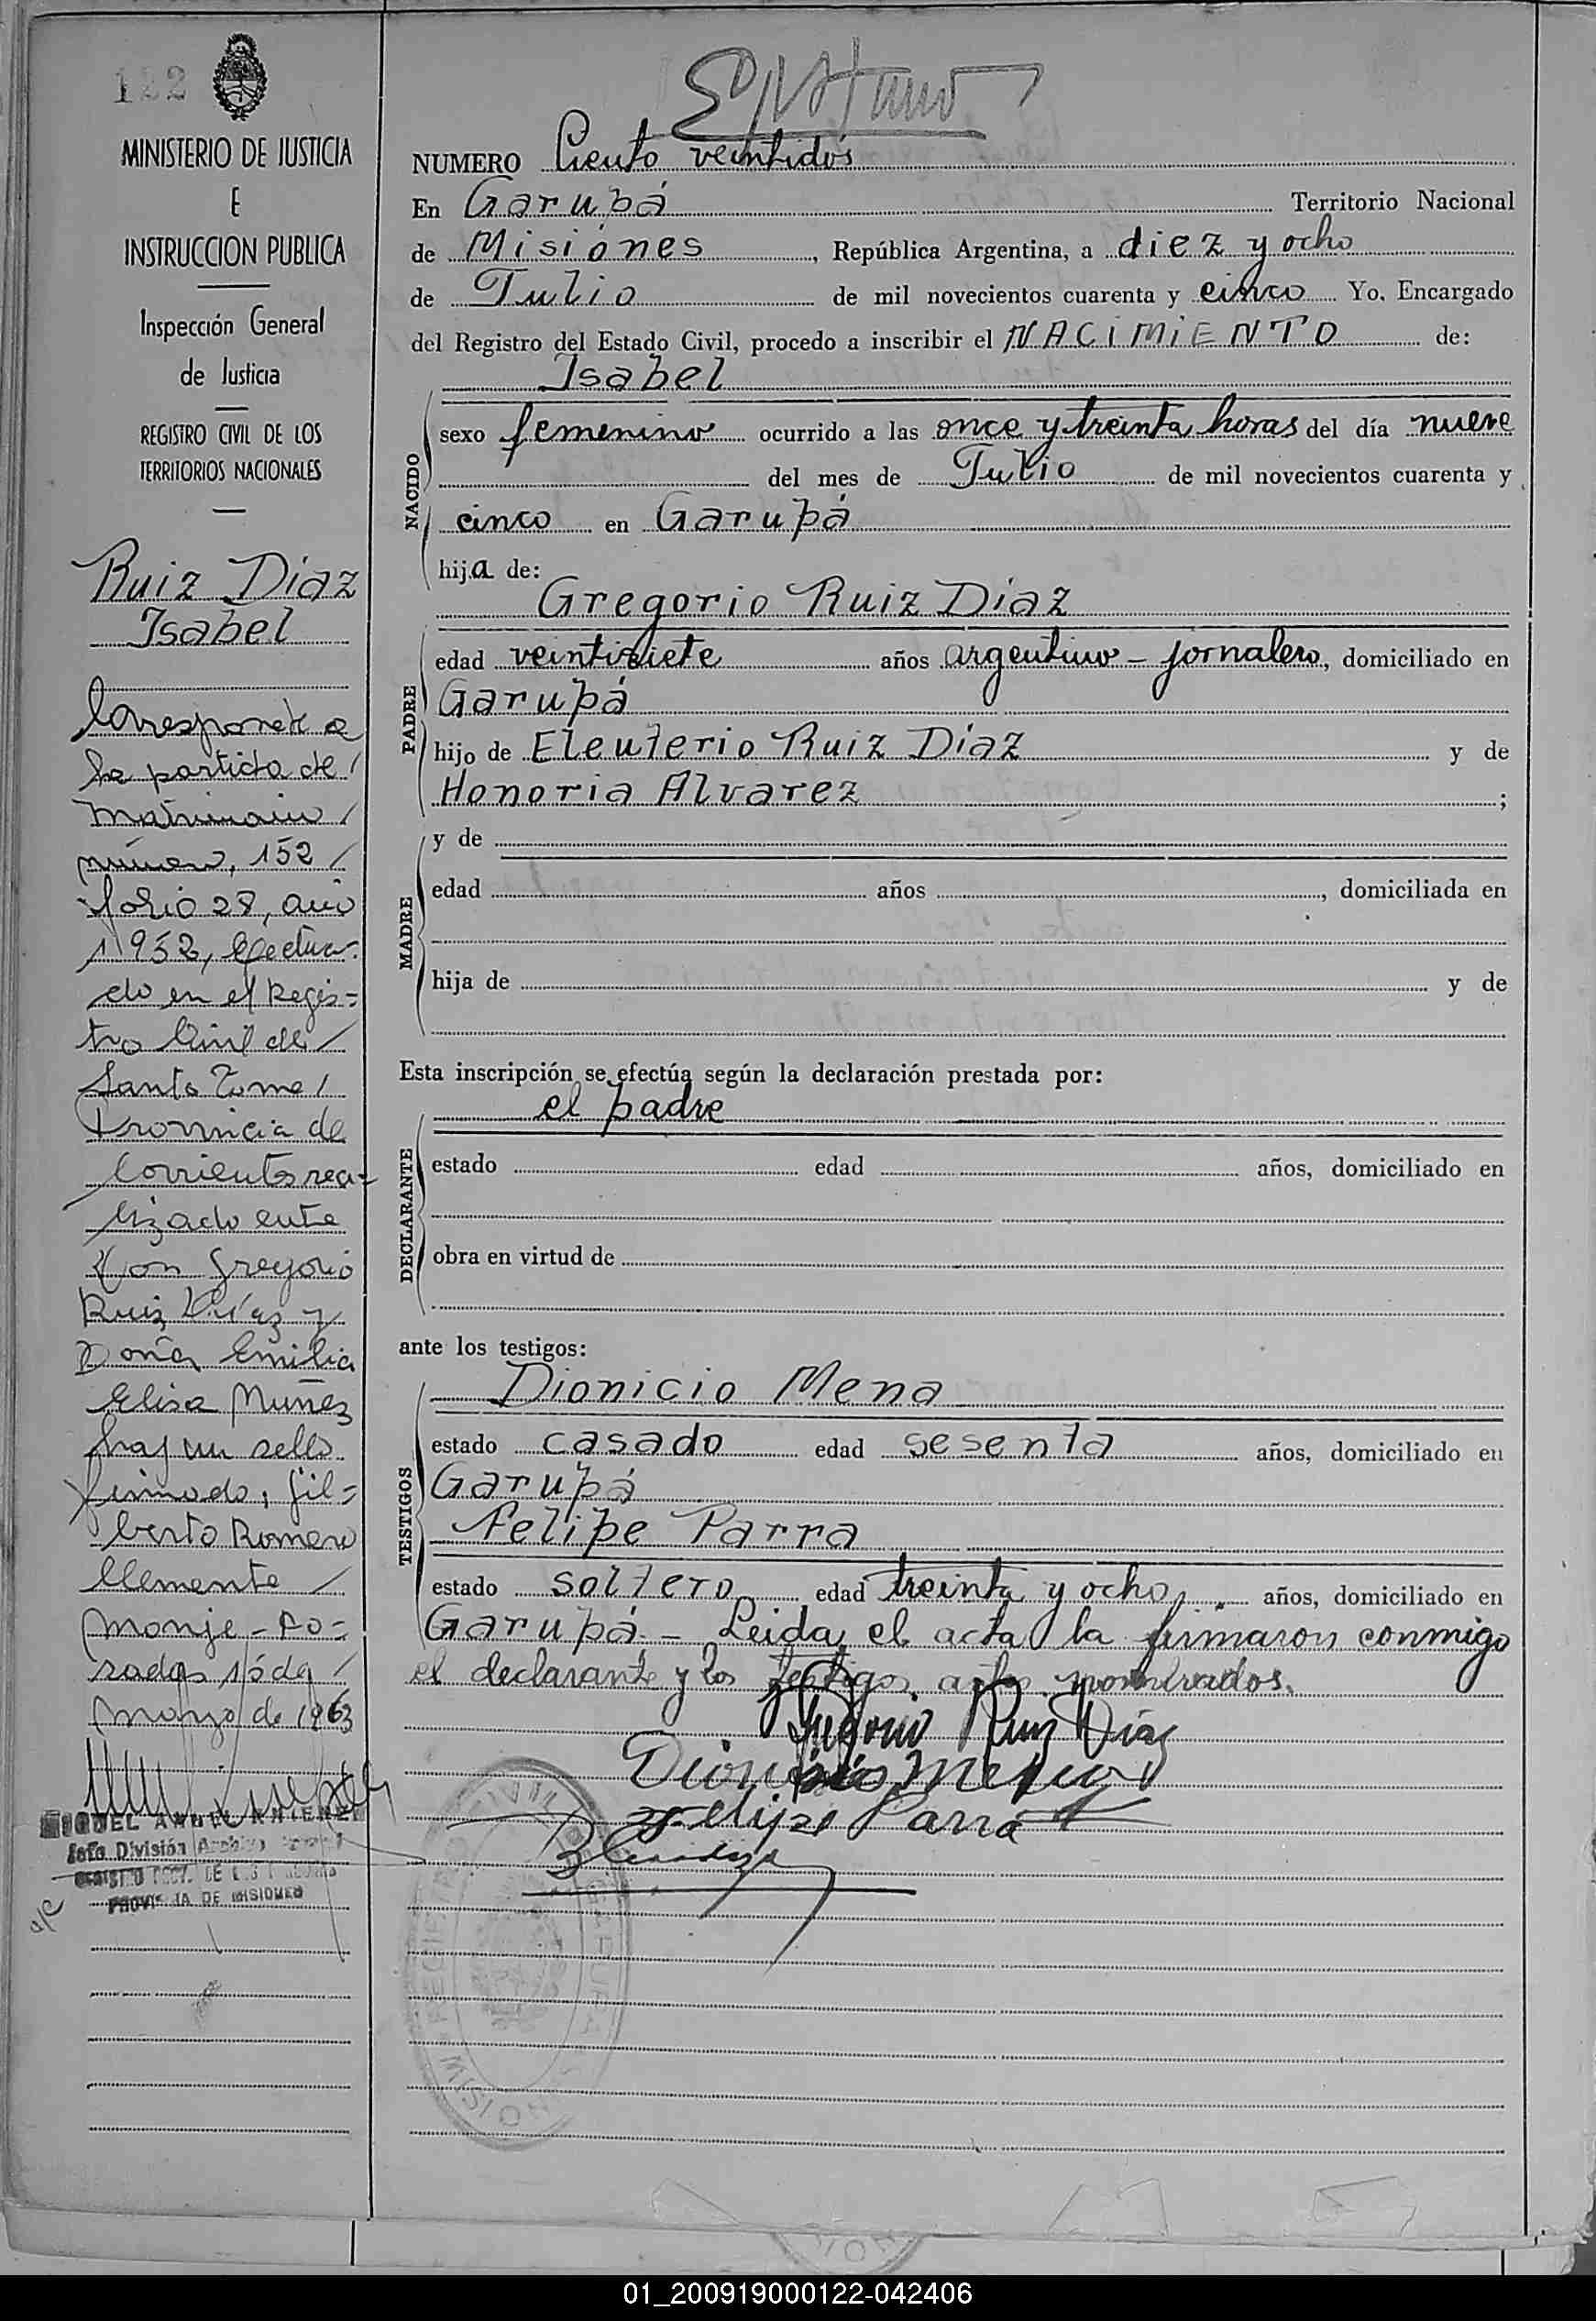 122
MINISTERIO DE JUSTICIA
E
INSTRUCCION PUBLICA
Inspección General
de Justicia
REGISTRO CIVIL DE LOS
TERRITORIOS NACIONALES
Ruiz Díaz
Isabel
Corresponde a
la partida de /
matrimonio /
número, 152 /
folio 28, año
1952, efectua-
do en el Regis=
tro Civil de /
Santo Tome /
Provincia de
Corrientes rea-
lizado entre
Don Gregorio
Ruiz Díaz y
Doña Emilia
Elisa Muñez
hay un sello
firmado, Gil=
berto Romero
Clemente /
Monje - Po=
sadas 15 de /
Marzo de 1963
MIGUEL ANGEL
Jefe División Archivo
REGISTRO PROV. DE LAS
PROVINCIA DE MISIONES
NUMERO Ciento veintidós
En Garupá Territorio Nacional
de Misiones, República Argentina, a diez y ocho
de Julio de mil novecientos cuarenta y cinco Yo. Encargado
del Registro del Estado Civil, procedo a inscribir el NACIMIENTO de:
Isabel
NACIDO
sexo femenino ocurrido a las once y treinta horas del día nueve
del mes de Julio de mil novecientos cuarenta y
cinco en Garupá
hija de:
Gregorio Ruiz Díaz
PADRE
edad veintisiete años argentino - jornalero, domiciliado en
Garupá
hijo de Eleuterio Ruiz Díaz y de
Honoria Alvarez ;
MADRE
y de
edad años , domiciliada en
hija de y de
Esta inscripción se efectúa según la declaración prestada por:
el padre
DECLARANTE
estado edad años, domiciliado en
obra en virtud de
ante los testigos:
TESTIGOS
Dionicio Mena
estado casado edad sesenta años, domiciliado en
Garupá
Felipe Parra
estado soltero edad treinta y ocho años, domiciliado en
Garupá - Leida el acta la firmaron conmigo
el declarante y los testigos antes nombrados.
Gregorio Ruiz Díaz
Dionisio Mena
Felipe Parra
01_200919000122-042406